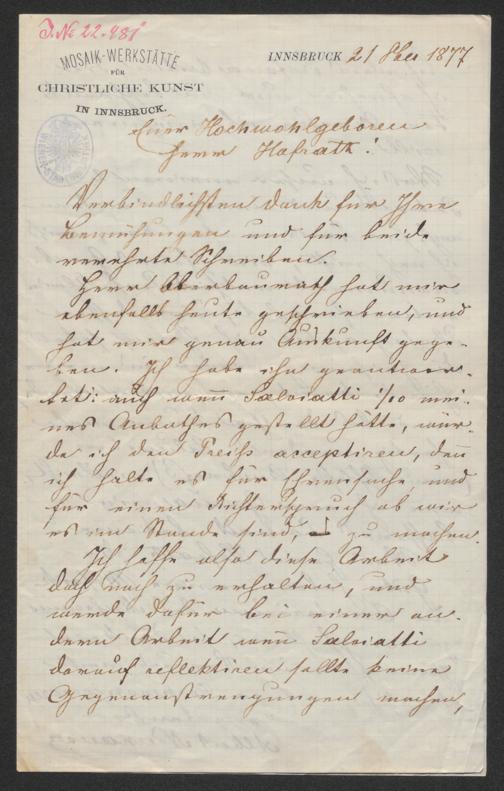 J. № 22.481
MOSAIK-WERKSTÄTTE
FÜR
CHRISTLICHE KUNST
IN INNSBRUCK.
INNSBRUCK 21 1877
Euer Hochwohlgeboren
Herr Hofrath!
Verbindlichsten Dank für Ihre
Bemühungen und für beide
verehrte Schreiben.
Herr Oberbaurath hat mir
ebenfalls heute geschrieben, und
hat mir genau Auskunft gege-
ben. Ich habe ihm geantwor-
tet: auch wenn Salviatti 1/10 mei-
nes Anbothes gestellt hätte, wür-
de ich den Preiß acceptiren, denn
ich halte es für Ehrensache und
für einen Richterspruch ob wir
es im Stande sind, zu machen.
Ich hoffe also diese Arbeit
doch noch zu erhalten, und
werde dafür bei einer an-
dern Arbeit wenn Salviatti
darauf reflektiren sollte keine
Gegenanstrengungen machen,